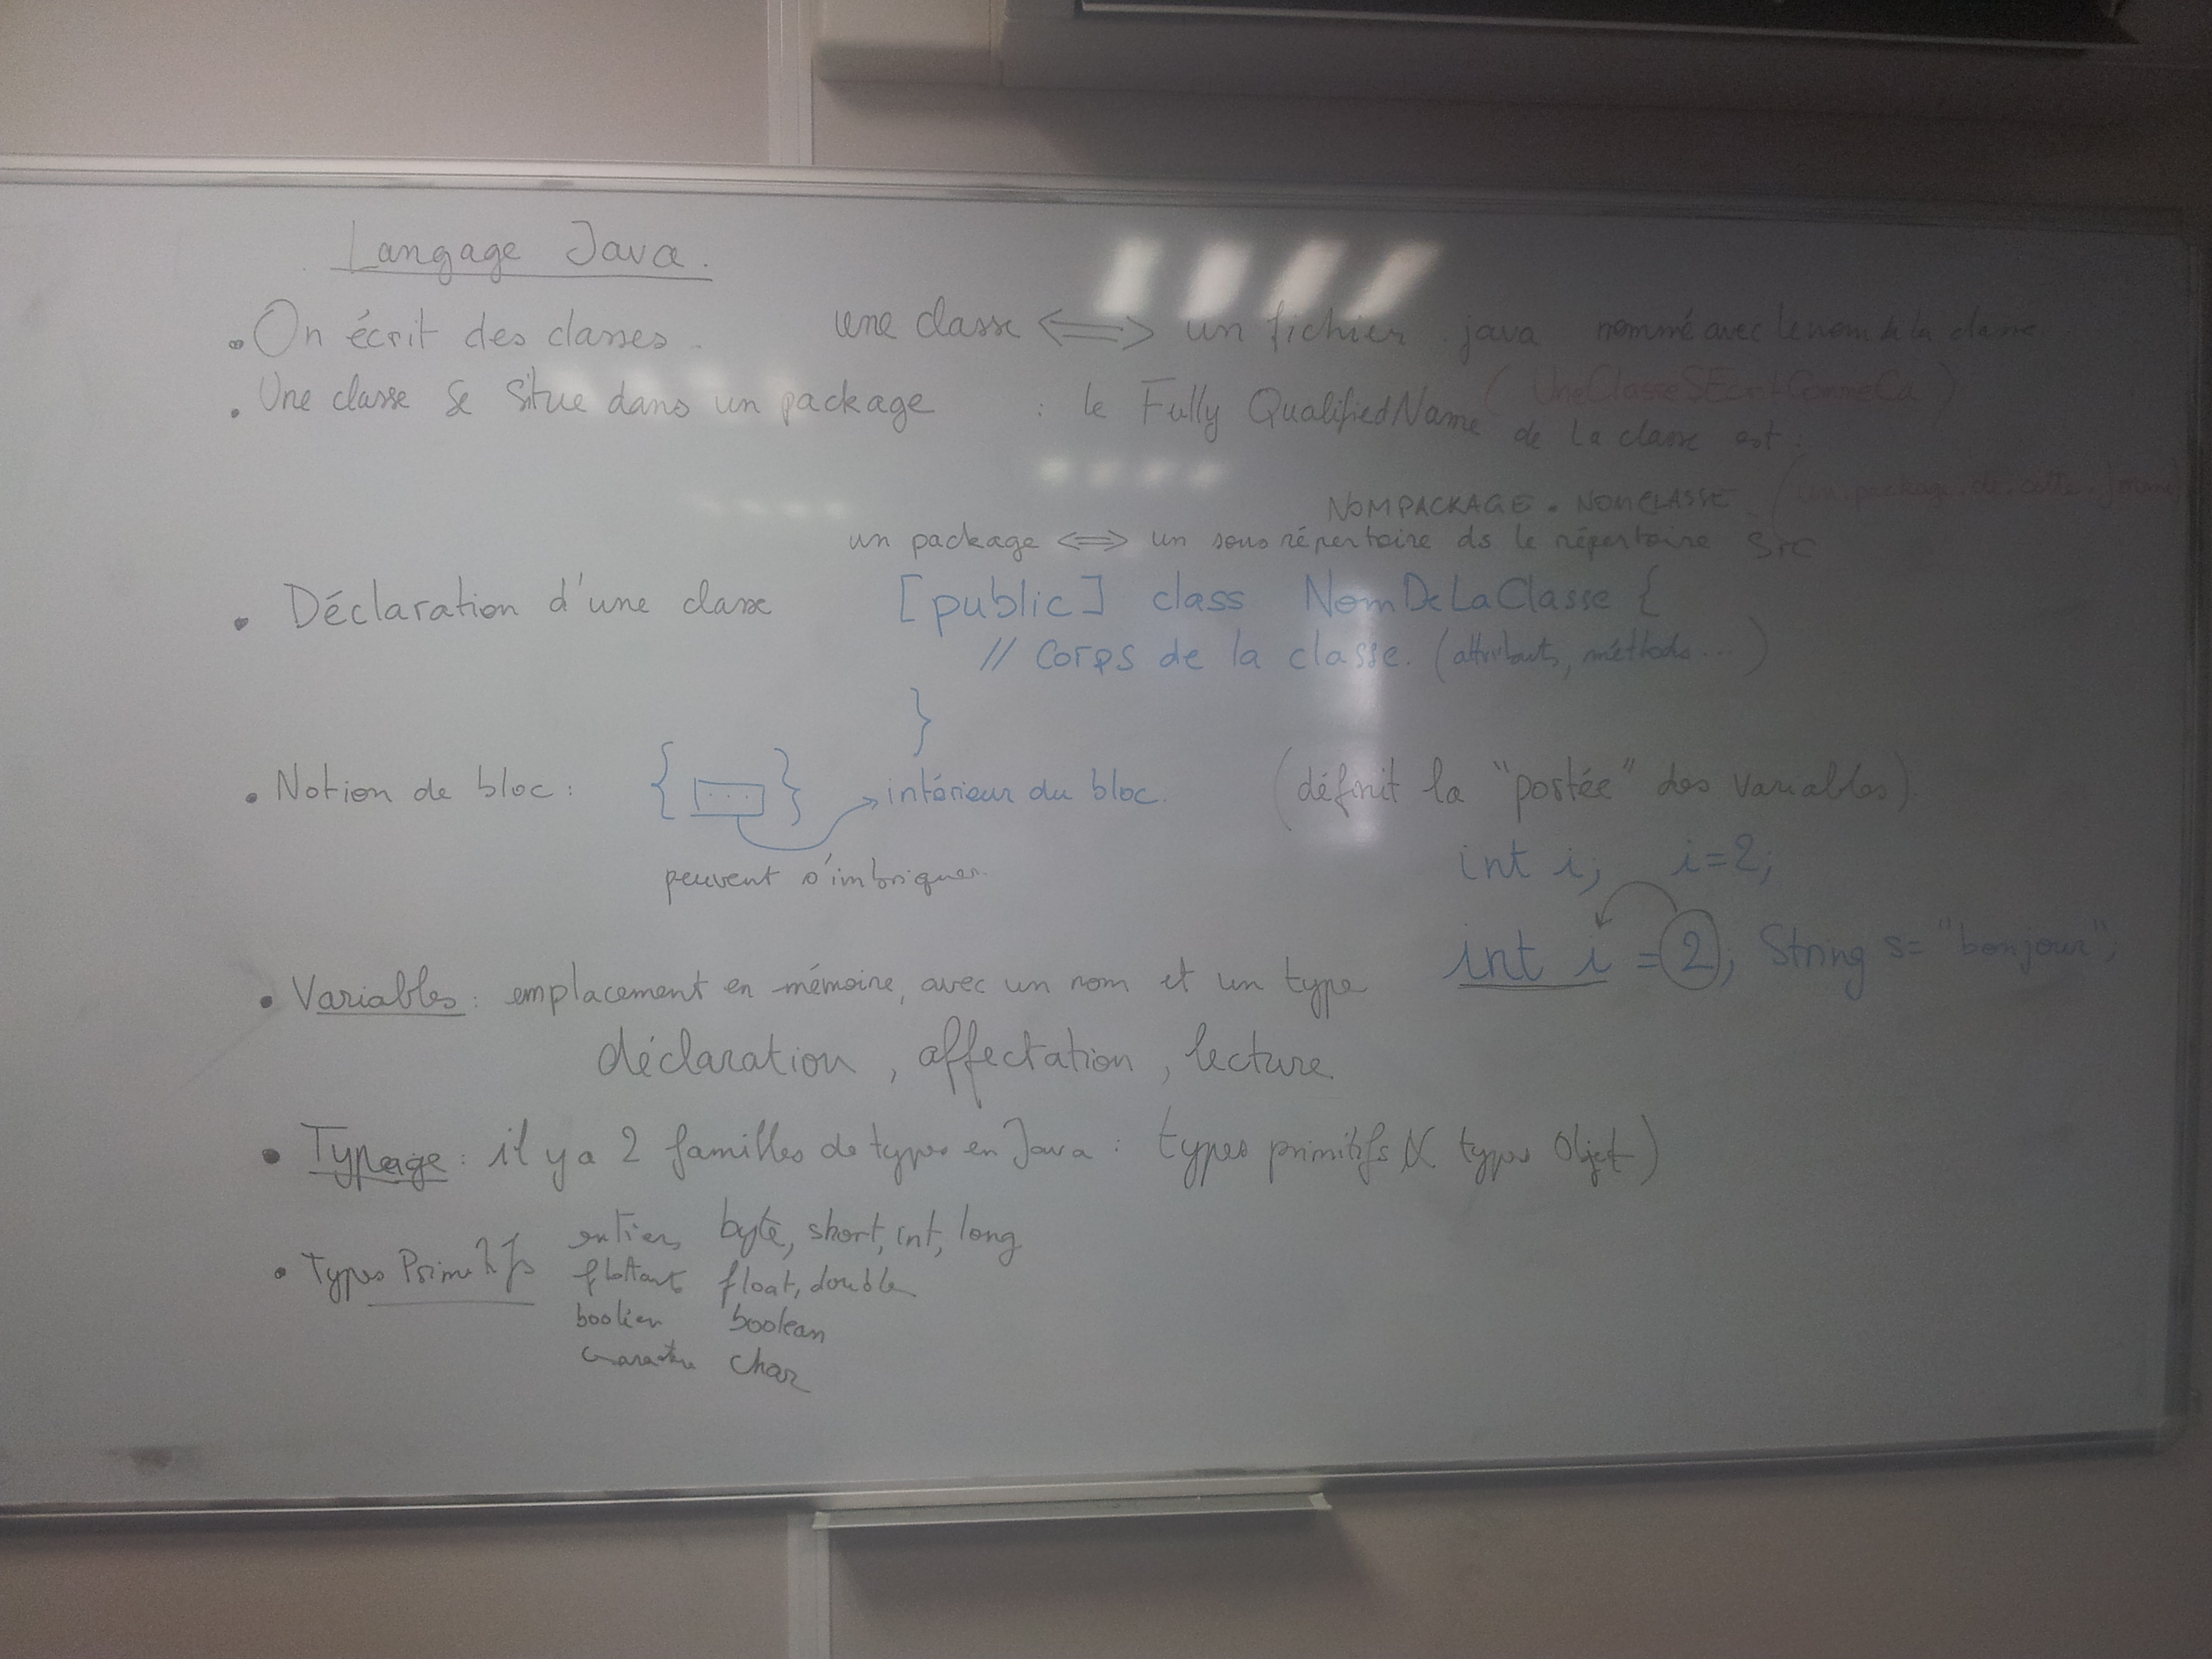 Langage Java.
• On écrit des classes. une classe <=> un fichier .java nommé avec le nom de la classe
( UneClasseSEcritCommeCa )
• Une classe se situe dans un package : le Fully QualifiedName de la classe est :
NOMPACKAGE . NOMCLASSE (un.package.de.cette.forme)
un package <=> un sous répertoire ds le répertoire src
• Déclaration d'une classe [public] class NomDeLaClasse {
// Corps de la classe. (attributs, méthodes ...)
}
• Notion de bloc : { ... } intérieur du bloc. (définit la "portée" des variables).
peuvent s'imbriquer.
int i; i=2;
int i = 2; String s= "bonjour";
• Variables : emplacement en mémoire, avec un nom et un type
déclaration, affectation, lecture
• Typage : il y a 2 familles de types en Java : types primitifs types Objet)
• Types Primitifs entiers byte, short, int, long
flottants float, double
booléen boolean
caractère char